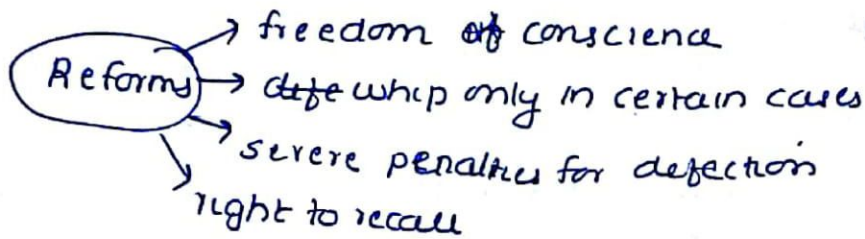 freedom of conscience
Reforms
whip only in certain cases
severe penalties for defection
right to recall